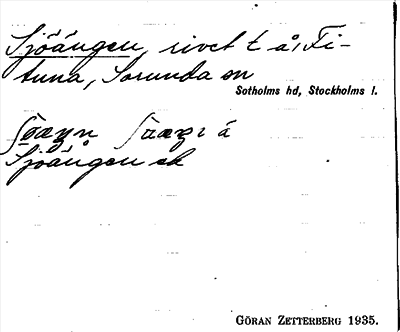 Sjöängen, rivet t å, Fi-
tuna, Sorunda sn
Sotholms hd, Stockholms l.
å
Sjöängen ek
GÖRAN ZETTERBERG 1935.